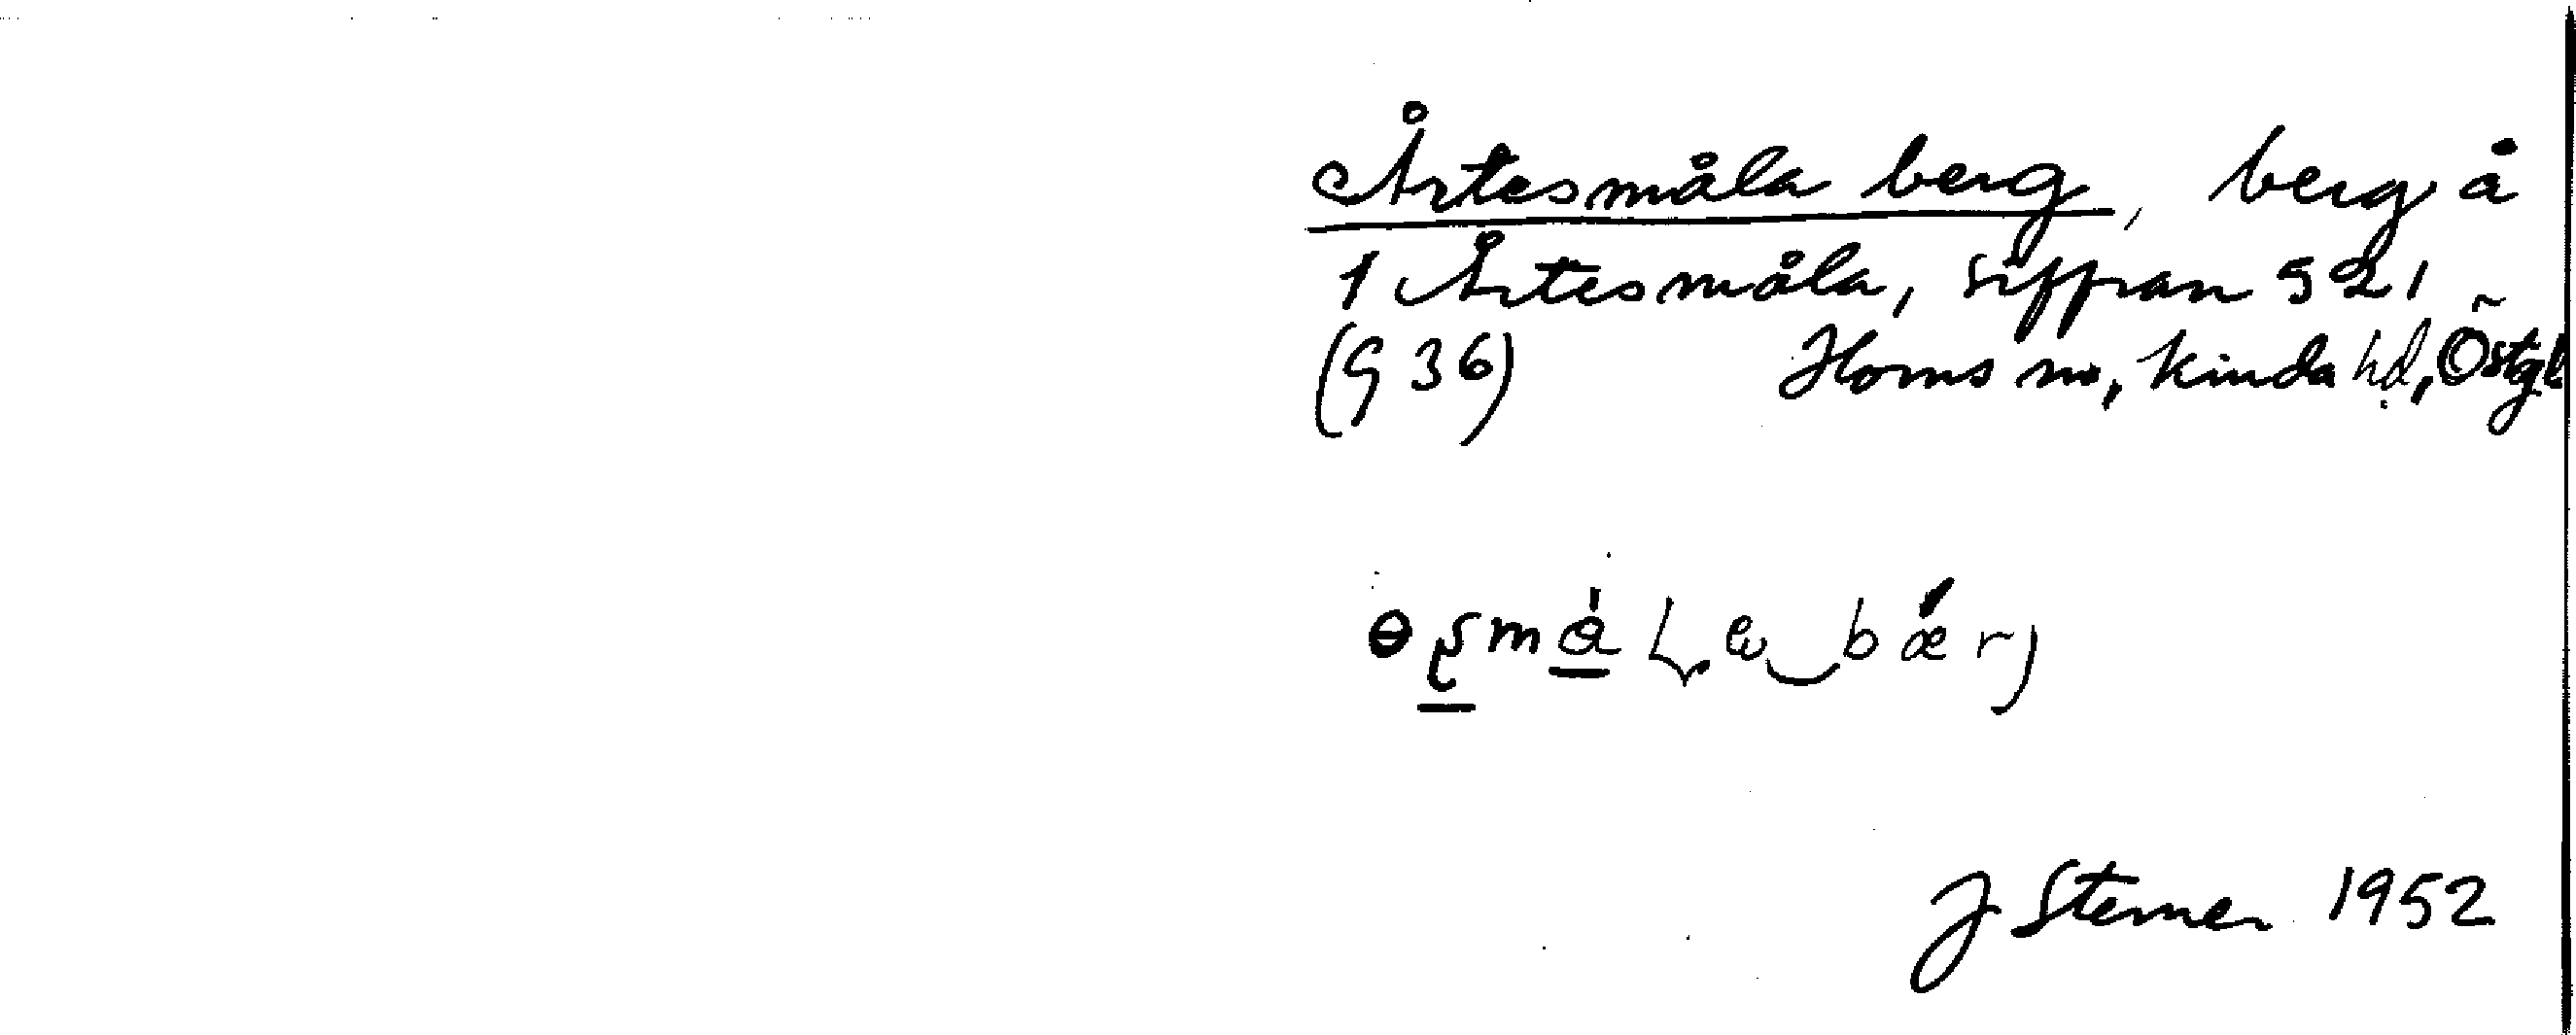 Årtesmåla berg, berg å
1 Årtesmåla, siffran 521
(G 36) Horns sn, Kinda hd, Östgl
J Sterner 1952